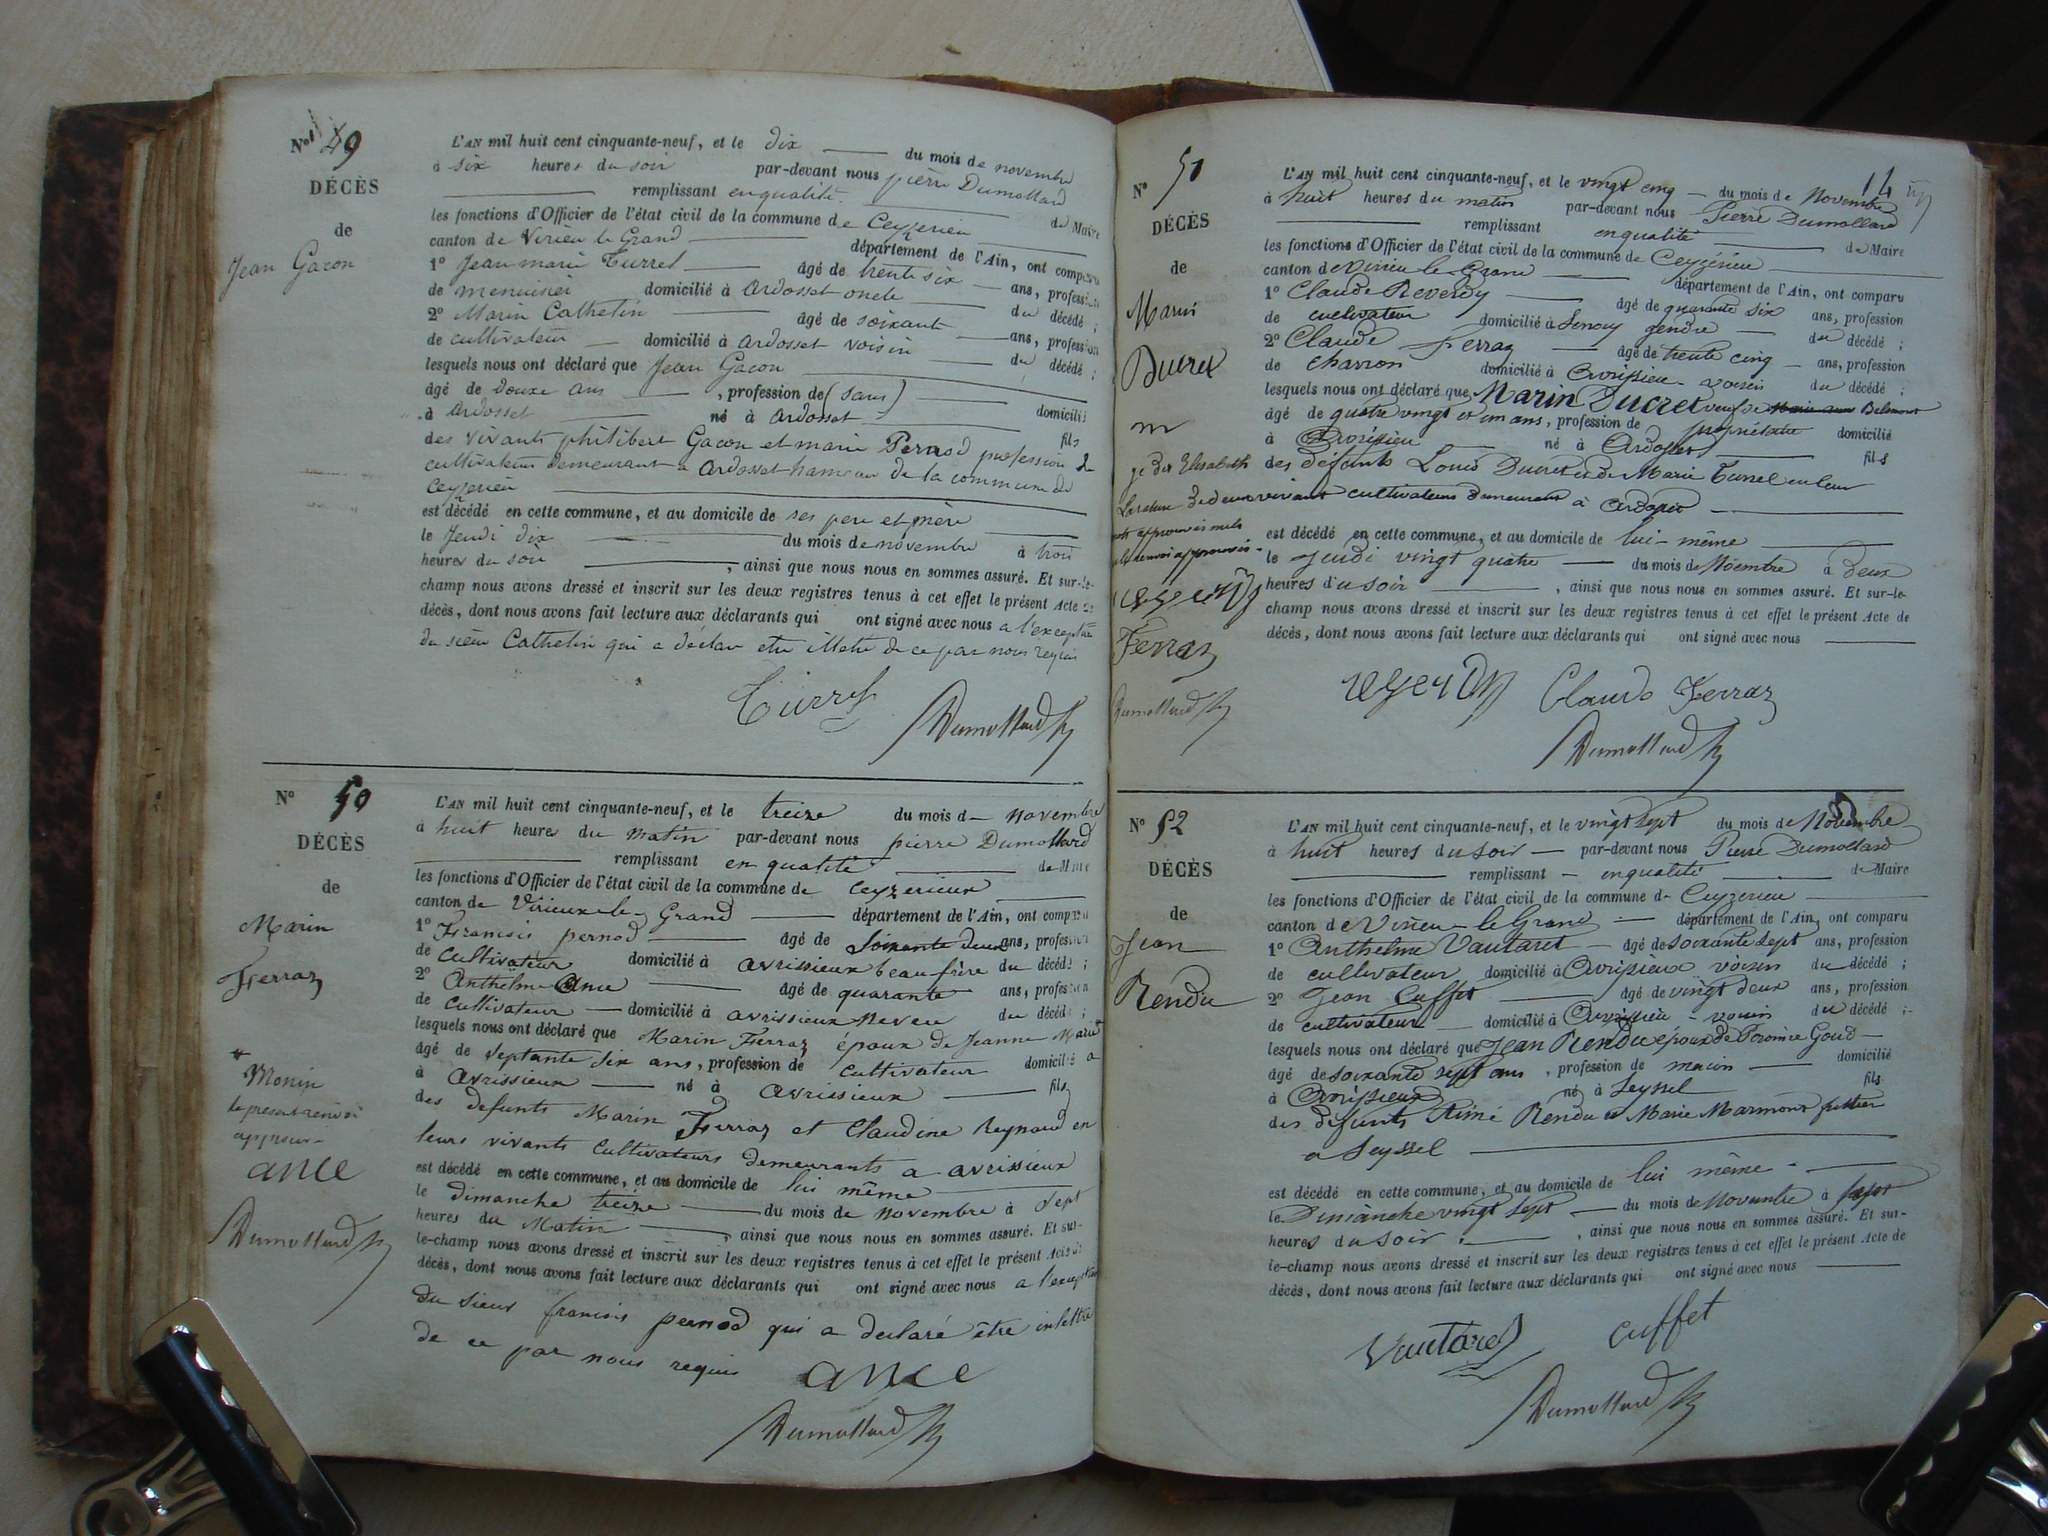 N° 49
DÉCÈS
de
Jean Gacon
L'AN mil huit cent cinquante-neuf, et le dix du mois de novembre
à six heures du soir par-devant nous pierre Dumollard
remplissant en qualité de Maire
les fonctions d'Officier de l'état civil de la commune de Ceyzerieu
canton de Virieu le Grand département de l'Ain, ont comparu
1° Jean marie Turrel âgé de trente six ans, profession
de menuisier domicilié à ardosset oncle du décédé ;
2° Marin Cathelin âgé de soixante ans, profession
de cultivateur domicilié à ardosset voisin du décédé ;
lesquels nous ont déclaré que Jean Gacon
âgé de douze ans , profession de (sans) domicilié
à ardosset né à ardosset fils
des vivants philibert Gacon et marie Pernod profession de
cultivateurs demeurant a ardosset hameau de la commune de
Ceyzerieu
est décédé en cette commune, et au domicile de ses pere et mère
le Jeudi dix du mois de novembre à trois
heures du soir , ainsi que nous nous en sommes assuré. Et sur-le-
champ nous avons dressé et inscrit sur les deux registres tenus à cet effet le présent Acte de
décès, dont nous avons fait lecture aux déclarants qui ont signé avec nous a l'exception
du sieur Cathelin qui a déclaré etre illetré de ce par nous requis
Turrel
Dumollard
N° 50
DÉCÈS
de
Marin
Ferraz
*
Monin
le present renvoi
approuvé
ance
Dumollard
L'AN mil huit cent cinquante-neuf, et le treize du mois de novembre
à huit heures du matin par-devant nous pierre Dumollard
remplissant en qualité de Maire
les fonctions d'Officier de l'état civil de la commune de ceyzerieux
canton de Virieux-le-Grand département de l'Ain, ont comparu
1° Francois pernod âgé de soixante deux ans, profession
de cultivateur domicilié à avrissieux beau frère du décédé ;
2° Anthelme Ance âgé de quarante ans, profession
de cultivateur domicilié à avrissieux neveu du décédé ;
lesquels nous ont déclaré que Marin Ferraz époux de Jeanne Marie*
âgé de septante six ans, profession de cultivateur domicilié a
à avrissieux né à avrissieux fils
des defunts Marin Ferraz et Claudine Reynaud en
leurs vivants cultivateurs demeurants a avrissieux
est décédé en cette commune, et au domicile de lui même
le dimanche treize du mois de novembre à sept
heures du Matin , ainsi que nous nous en sommes assuré. Et sur-
le-champ nous avons dressé et inscrit sur les deux registres tenus à cet effet le présent Acte de
décès, dont nous avons fait lecture aux déclarants qui ont signé avec nous a l'exception
du sieur francois pernod qui a declaré être inlettré
de ce par nous requis
ance
Dumollard
14
N° 51
DÉCÈS
de
Marin
Ducret
Ferraz
Dumollard
L'AN mil huit cent cinquante-neuf, et le vingt cinq du mois de Novembre
à huit heures du matin par-devant nous Pierre Dumollard
remplissant en qualité de Maire
les fonctions d'Officier de l'état civil de la commune de Ceyzérieu
canton de Virieu-le-Grand département de l'Ain, ont comparu
1° Claude Reverdy âgé de quarante six ans, profession
de cultivateur domicilié à gendre du décédé ;
2° Claude Ferraz âgé de trente cinq ans, profession
de charron domicilié à Avrissieu voisin du décédé ;
lesquels nous ont déclaré que Marin Ducret veuf de Belmont
âgé de quatre vingt et un ans, profession de propriétaire domicilié
à Avrissieu né à Ardosset fils
des défunts Louis Ducret et de Marie Turrel en leur
vivant cultivateurs demeurant à Ardosset
est décédé en cette commune, et au domicile de lui-même
le Jeudi vingt quatre du mois de Novembre à deux
heures du soir , ainsi que nous nous en sommes assuré. Et sur-le-
champ nous avons dressé et inscrit sur les deux registres tenus à cet effet le présent Acte de
décès, dont nous avons fait lecture aux déclarants qui ont signé avec nous
Claude Ferraz
Dumollard
N° 52
DÉCÈS
de
Jean
Rendu
L'AN mil huit cent cinquante-neuf, et le vingt sept du mois de Novembre
à huit heures du soir par-devant nous Pierre Dumollard
remplissant en qualité de Maire
les fonctions d'Officier de l'état civil de la commune de Ceyzerieu
canton de Virieu-le-Grand département de l'Ain, ont comparu
1° Anthelme Vautaret âgé de soixante sept ans, profession
de cultivateur domicilié à Avrissieux voisin du décédé ;
2° Jean Cuffet âgé de vingt deux ans, profession
de cultivateur domicilié à Avrissieu voisin du décédé ;
lesquels nous ont déclaré que Jean Rendu époux de Goud
âgé de soixante sept ans , profession de maçon domicilié
à Avrissieux né à Seyssel fils
des défunts Rendu et Marie Marmont
a Seyssel
est décédé en cette commune, et au domicile de lui même
le Dimanche vingt sept du mois de Novembre à sept
heures du soir , ainsi que nous nous en sommes assuré. Et sur-
le-champ nous avons dressé et inscrit sur les deux registres tenus à cet effet le présent Acte de
décès, dont nous avons fait lecture aux déclarants qui ont signé avec nous
Vautaret
cuffet
Dumollard